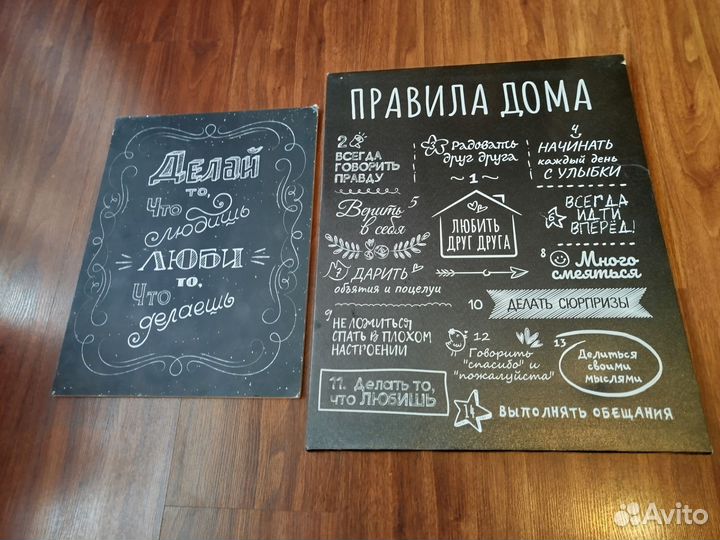 Делай
то,
Что
любишь
ЛЮБИ
то,
Что
делаешь
ПРАВИЛА ДОМА
2
ВСЕГДА
ГОВОРИТЬ
ПРАВДУ
3
Радовать
друг друга
4
НАЧИНАТЬ
каждый день
С УЛЫБКИ
1
ЛЮБИТЬ
ДРУГ ДРУГА
5
Верить
в себя
6
ВСЕГДА
ИДТИ
ВПЕРЁД!
7 ДАРИТЬ
объятия и поцелуи
8
Много
смеяться
9
НЕ ЛОЖИТЬСЯ
СПАТЬ В ПЛОХОМ
НАСТРОЕНИИ
10 ДЕЛАТЬ СЮРПРИЗЫ
11. Делать то,
что ЛЮБИШЬ
12
Говорить
"спасибо" и
"пожалуйста"
13
Делиться
своими
мыслями
14 ВЫПОЛНЯТЬ ОБЕЩАНИЯ
Avito